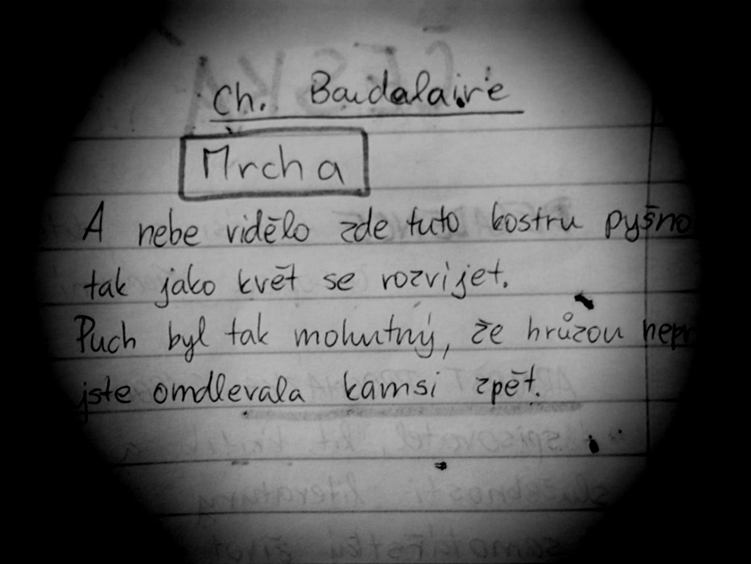 Ch. Baudalaire
Mrcha
A nebe vidělo zde tuto kostru pyšno
tak jako květ se rozvíjet.
Puch byl tak mohutný, že hrůzou nepr
jste omdlevala kamsi zpět.